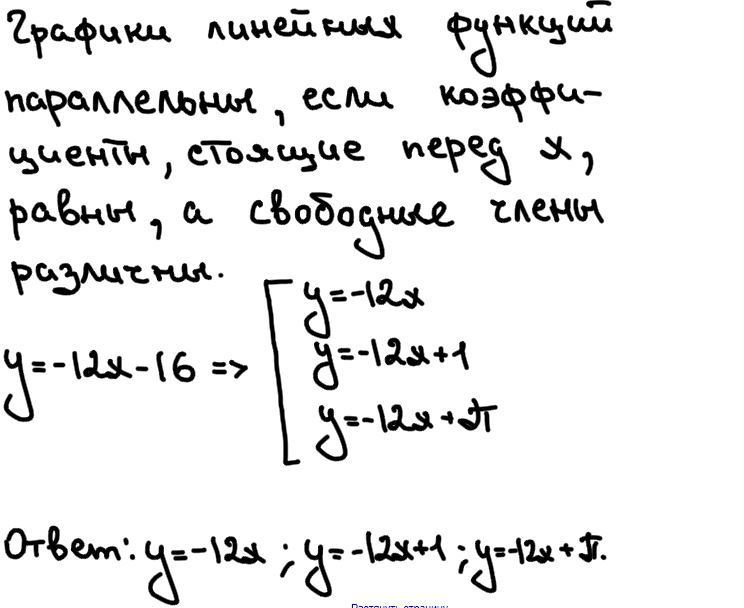 Графики линейных функций
параллельны, если коэффи-
циенты, стоящие перед x,
равны, а свободные члены
различны.
y=-12x
y=-12x-16 =>
y=-12x+1
y=-12x+π
Ответ: y=-12x ; y=-12x+1 ; y=-12x+π.
Растянуть страницу